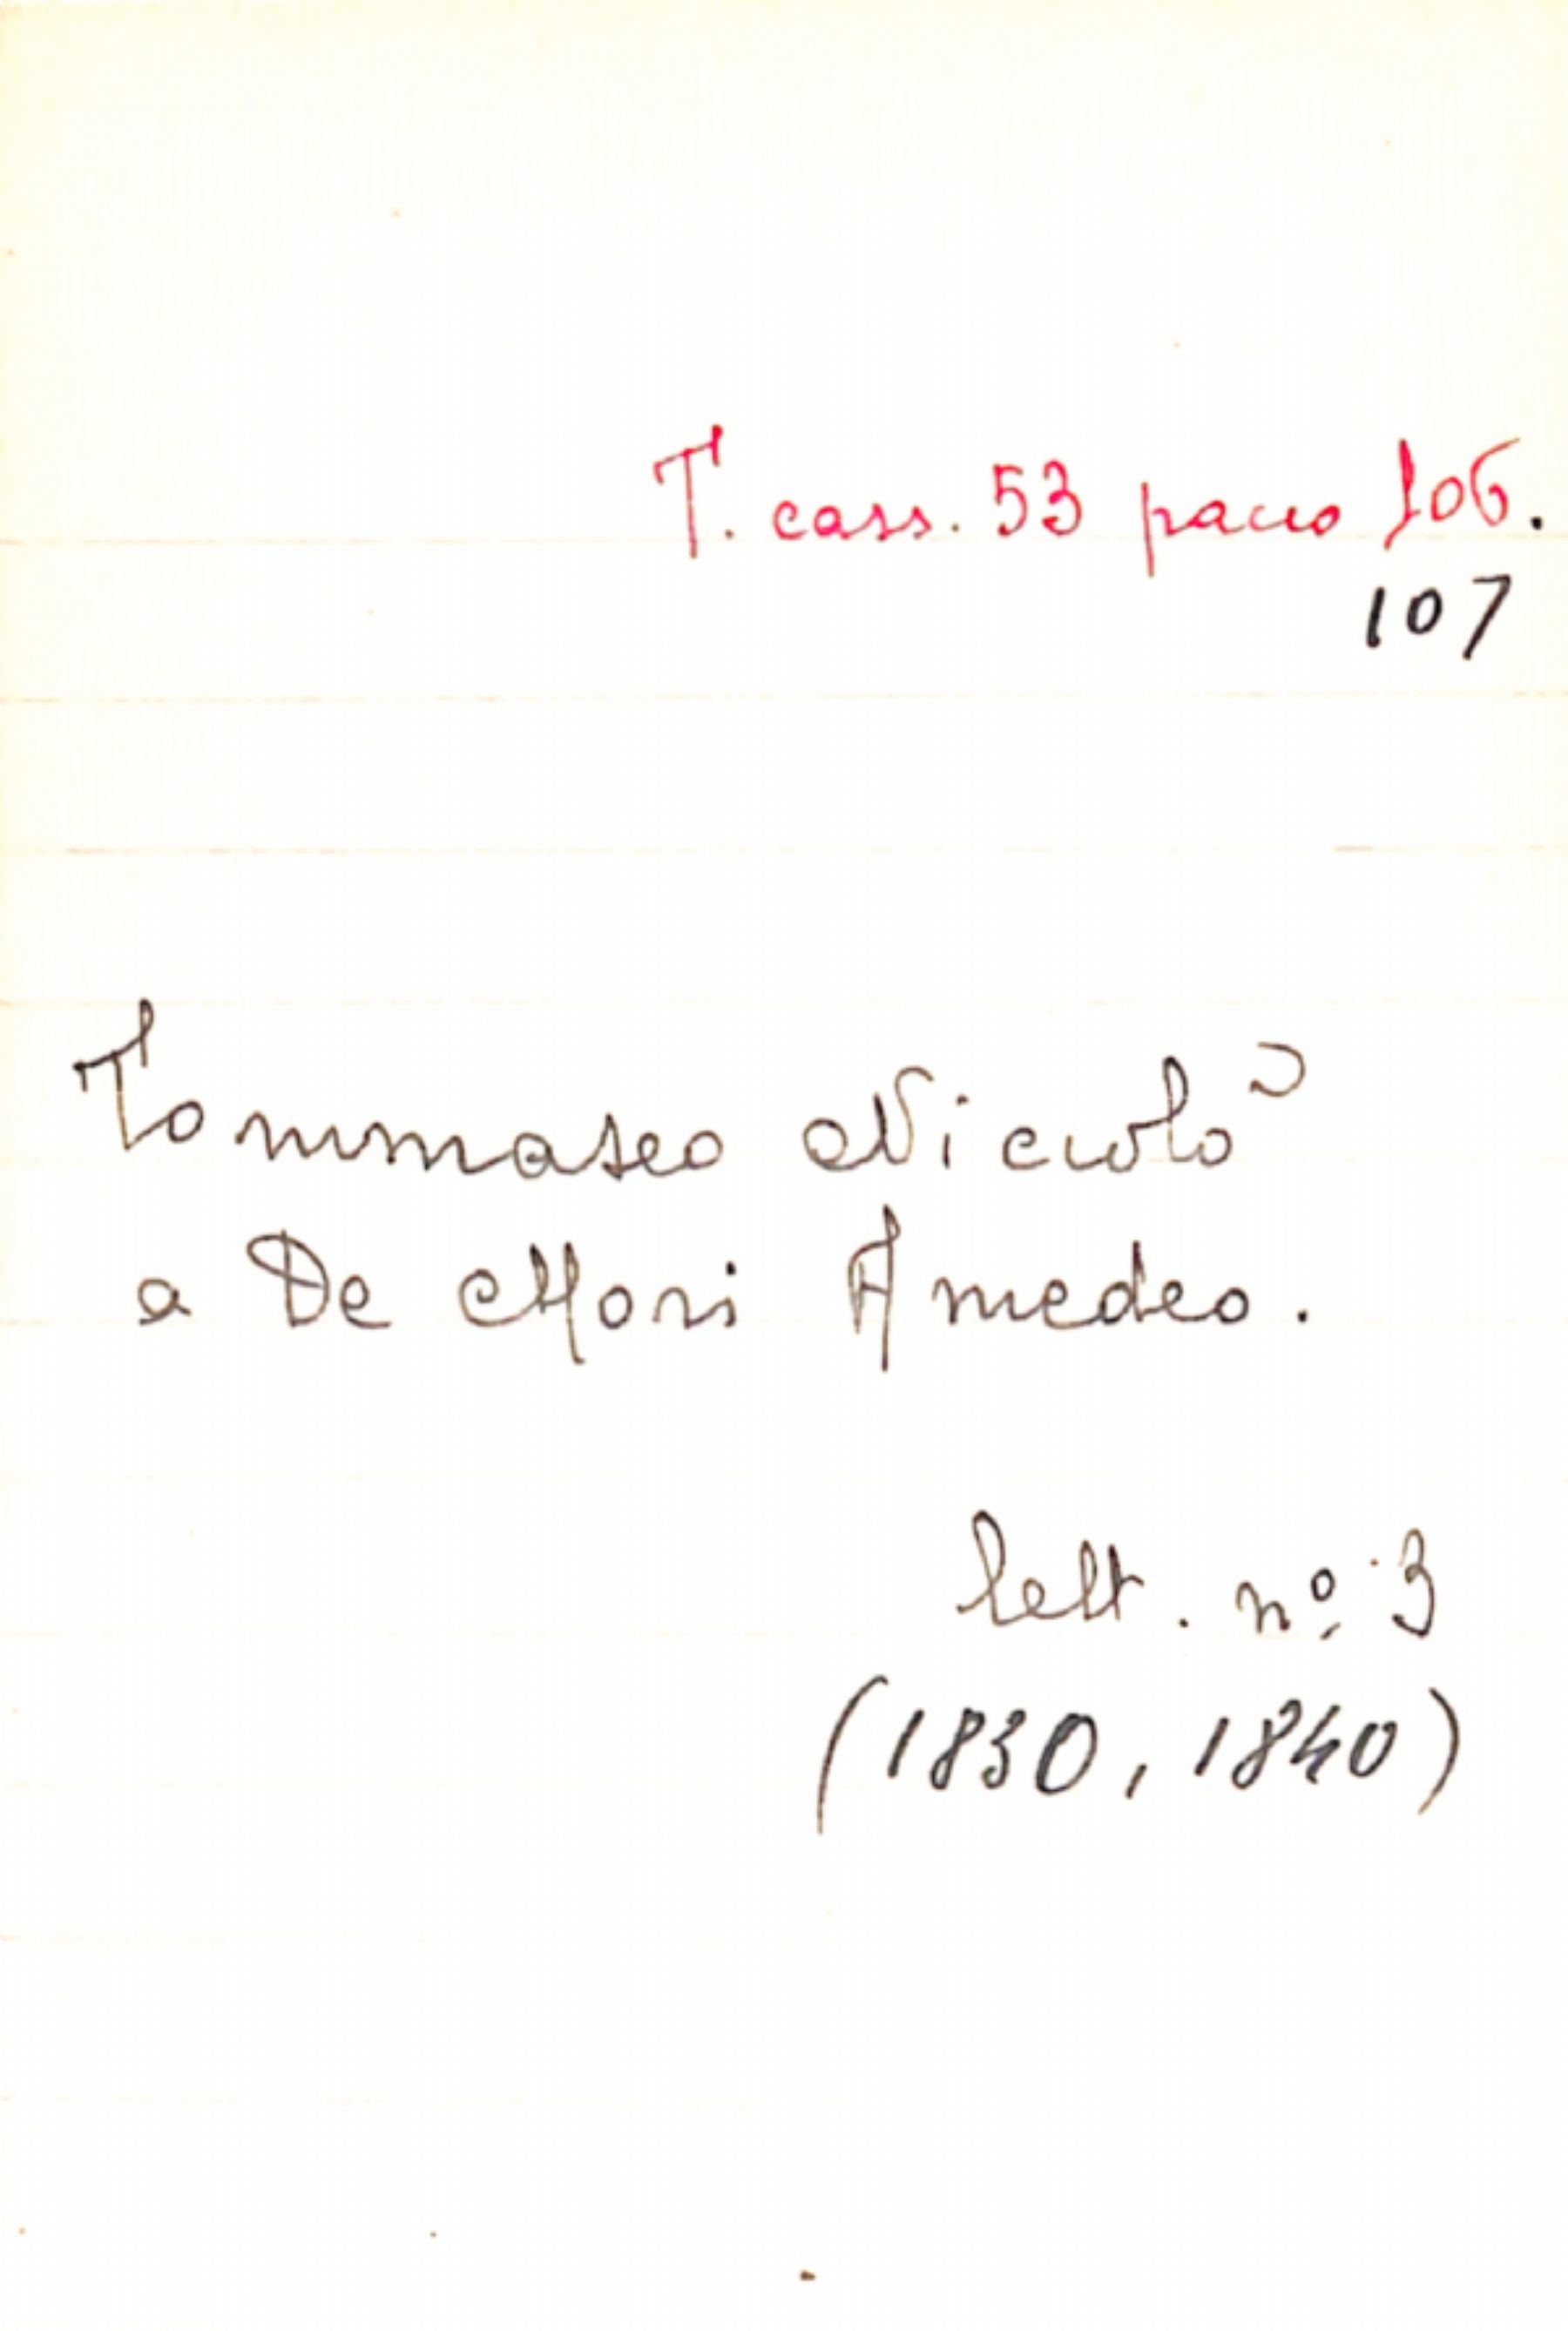 T. cass. 53 pacco 106.
107
Tommaseo Niccolò
a De Mori Amedeo.
lett. nº 3
(1830, 1840)